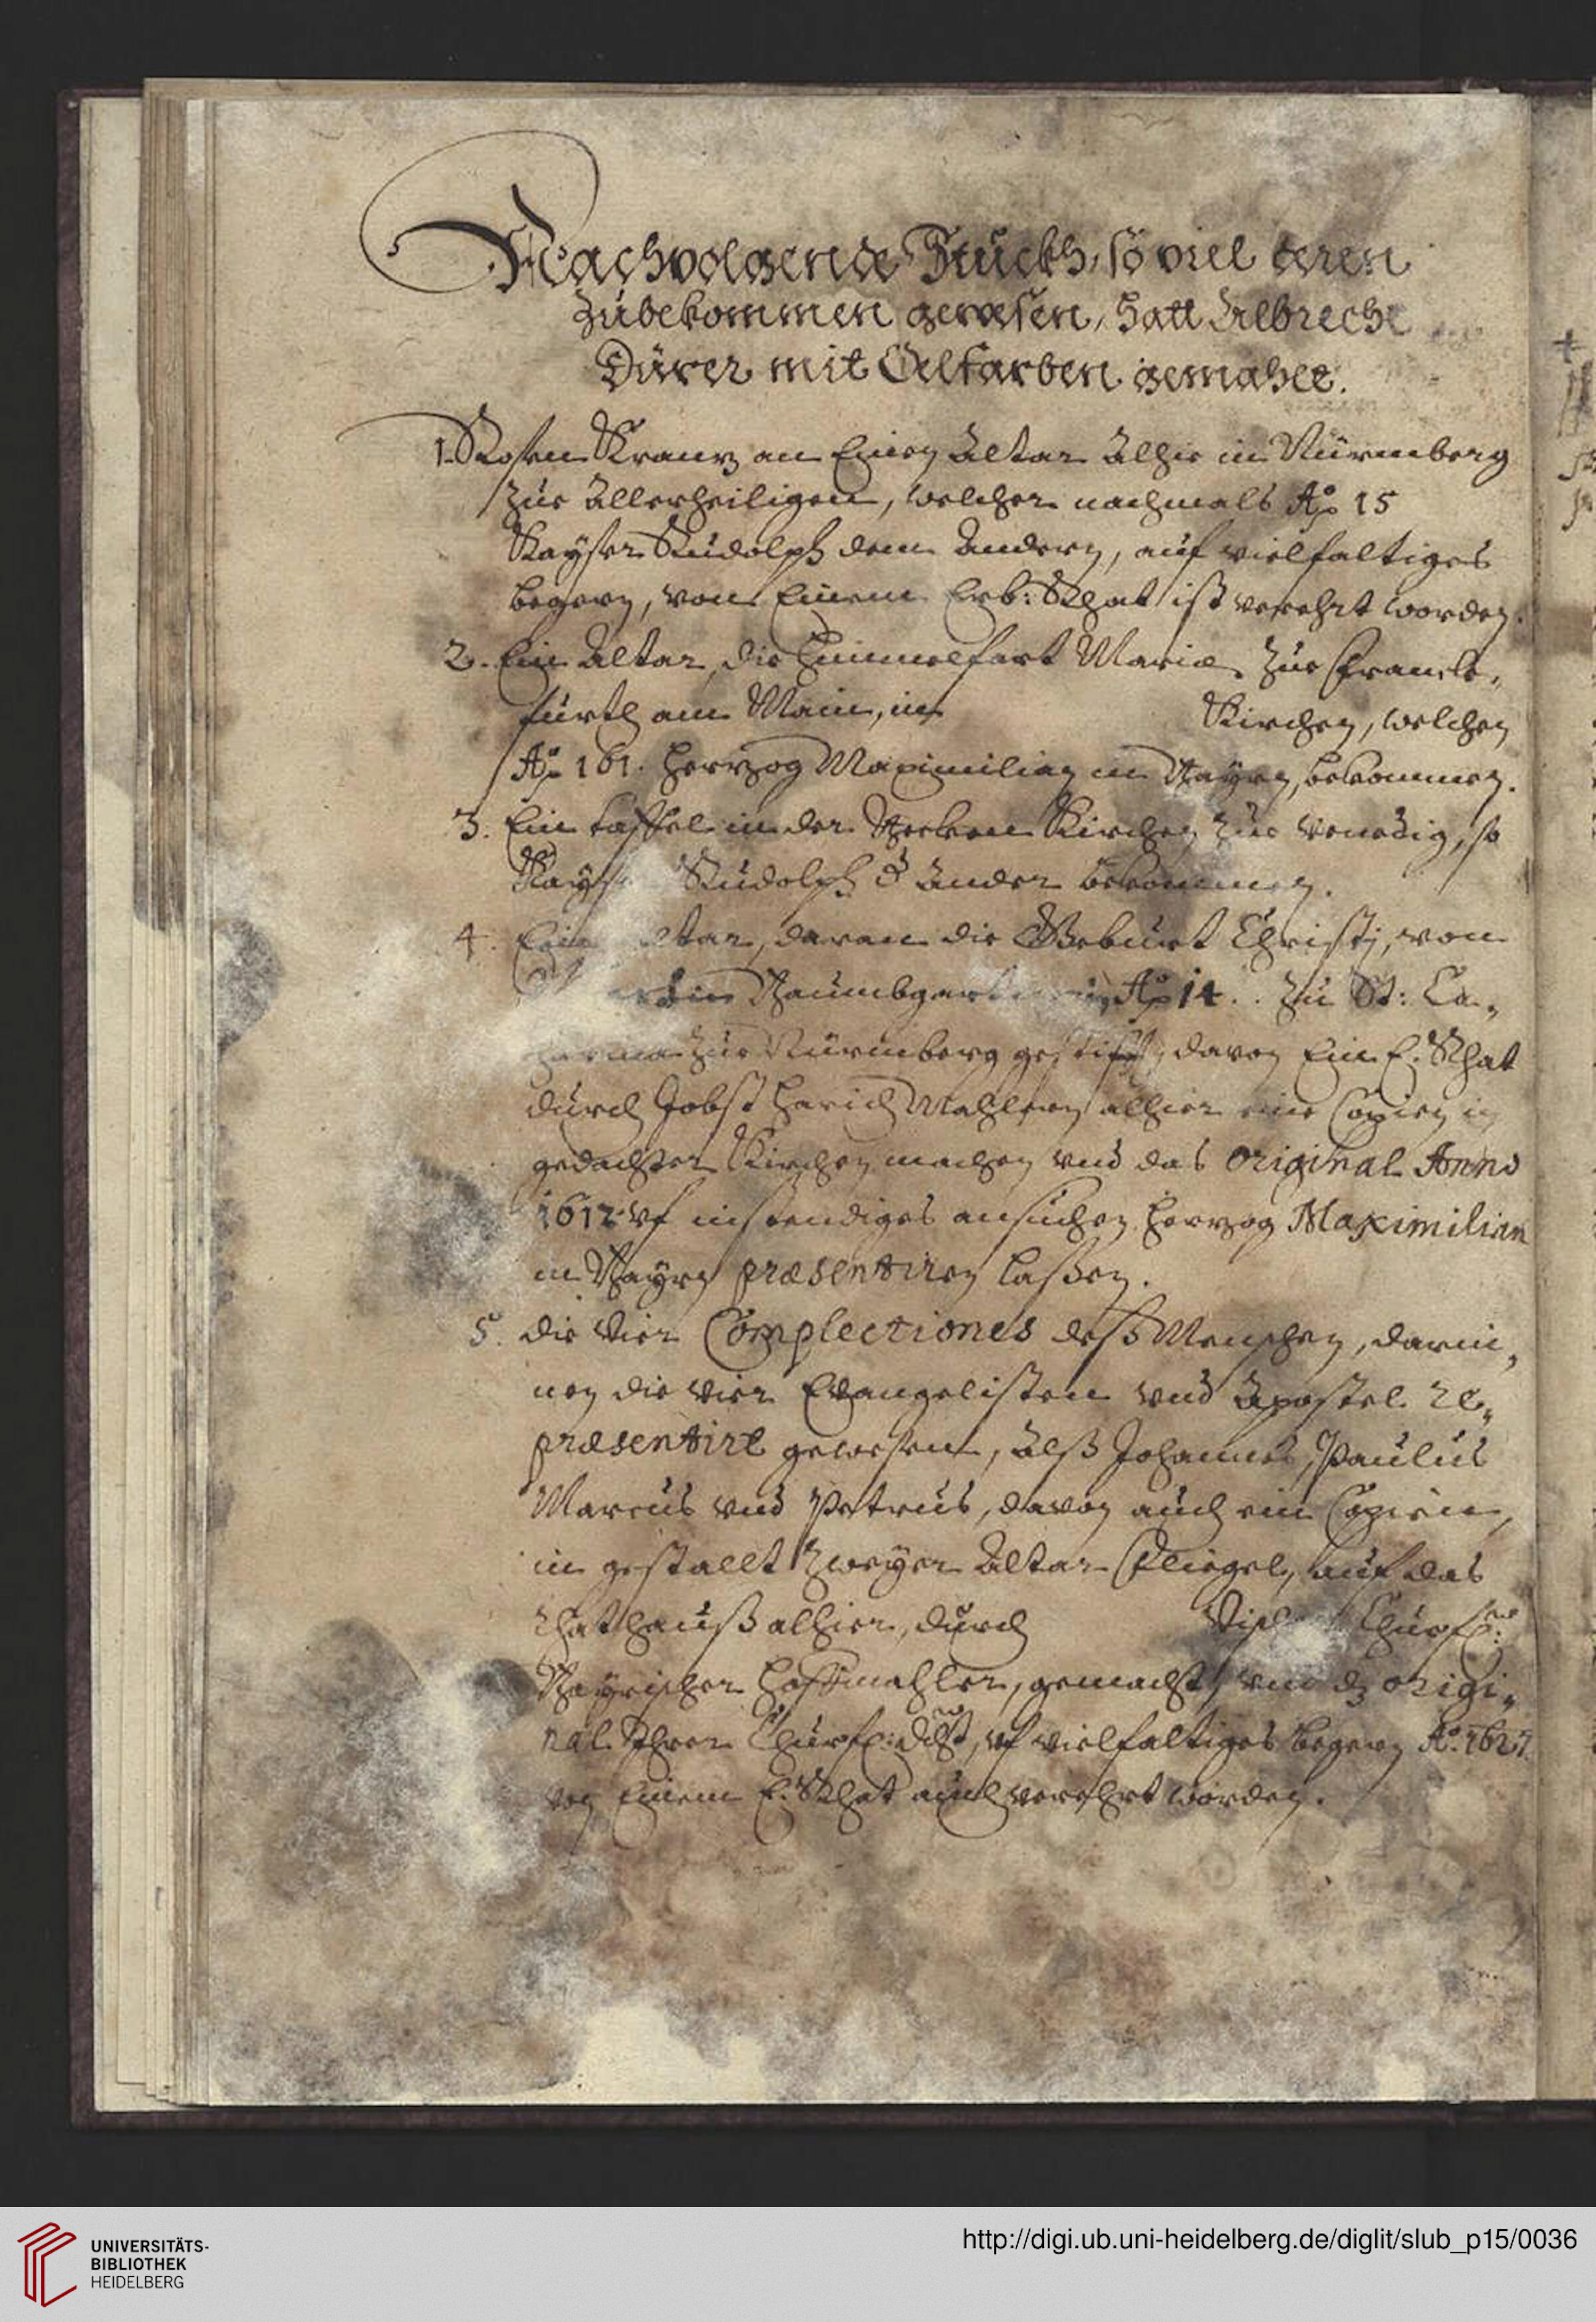 Nachvolgende Stückh, so viel deren
zubekommen gewesen, hatt Albrecht
Dürer mit Oelfarben gemahlt.
1. Rosen Krantz an Einen Altar Alhie in Nürmberg
zue Allerheiligen, welcher nachmals Ao 15
Kayser Rudolph dem Andern, auf vielfaltiges
begern, von Einem Erb: Rhat ist verehrt worden.
2. Ein Altar, die Himmelfart Mariæ, zue Franck-
furth am Main, in Kirchen, welchen
Ao 161. Herzog Maximilian in Bayrn, bekommen.
3. Ein taffel in der Kirchen zue Venedig, so
Kayser Rudolph d ander bekommen.
4. Ein Altar, daran die Geburt Christj, von
Ao 14 . . zu St: Ca-
zue Nürmberg gestifft, davon Ein E: Rhat
durch Jobst Harich Mahlern alhier eine Copien in
gedachter Kirchen machen vnd das Original Anno
1612 vf instendiges ansuchen Herzog Maximilian
in Bayrn præsentiren laßen.
5. die vier Complectiones deß Menschen, darin,
nen die vier Evangelisten vnd Apostel re-
præsentirt gewesen, Alß Johannes, Paulus
Marcus vnd Petrus, davon auch ein Copien,
in gestallt Zweyer Altar Fliegel, auf das
Rhathauß alhier, durch Churfl:
Bayrischer Hoffmahler, gemacht, vnd dz origi-
nal Ihrer Churfl: dhlt, vf vielfaltiges begern Ao: 1627
von Einem E: Rhat auch verehrt worden.
UNIVERSITÄTS-
BIBLIOTHEK
HEIDELBERG
http://digi.ub.uni-heidelberg.de/diglit/slub_p15/0036